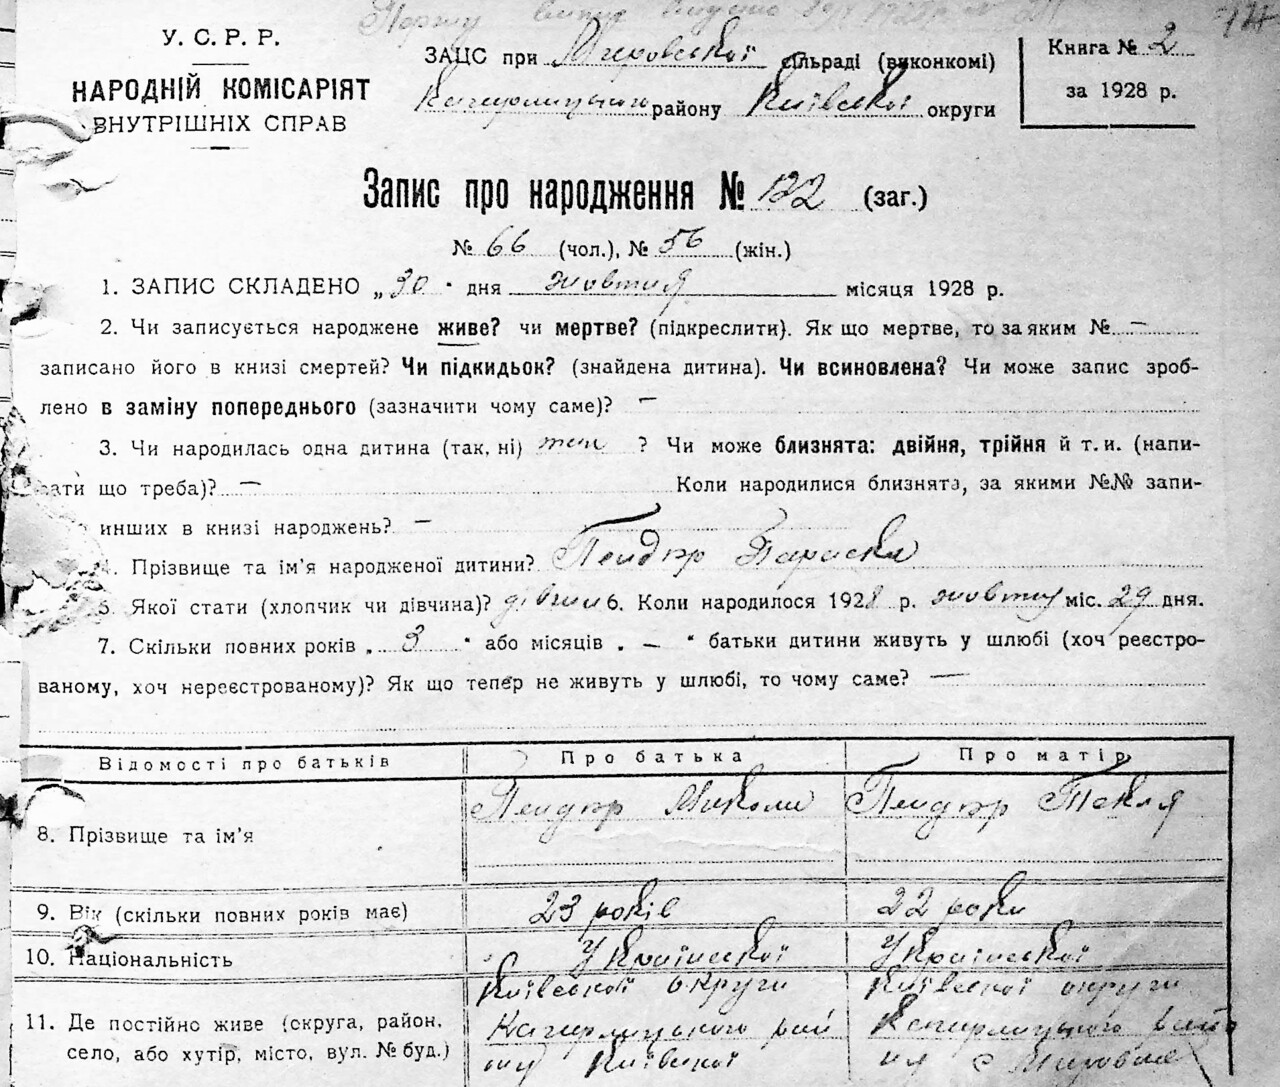 У. С. Р. Р.
НАРОДНІЙ КОМІСАРІЯТ
ВНУТРІШНІХ СПРАВ
ЗАЦС при Мировської сільраді (виконкомі)
Кагарлицького району Київської округи
Книга № 2
за 1928 р.
Запис про народження № 122 (заг.)
№ 66 (чол.), № 56 (жін.)
1. ЗАПИС СКЛАДЕНО „30" дня жовтня місяця 1928 р.
2. Чи записується народжене живе? чи мертве? (підкреслити). Як що мертве, то за яким № —
записано його в книзі смертей? Чи підкидьок? (знайдена дитина). Чи всиновлена? Чи може запис зроб-
лено в заміну попереднього (зазначити чому саме)? —
3. Чи народилась одна дитина (так, ні) так ? Чи може близнята: двійня, трійня й т. и. (напи-
сати що треба)? — Коли народилися близнята, за якими №№ запи-
инших в книзі народжень? —
4. Прізвище та ім'я народженої дитини? Параска
5. Якої стати (хлопчик чи дівчина)? дівчин 6. Коли народилося 1928 р. жовтня міс. 29 дня.
7. Скільки повних років „ 3 " або місяців „ — " батьки дитини живуть у шлюбі (хоч реєстро-
ваному, хоч нереєстрованому)? Як що тепер не живуть у шлюбі, то чому саме? —
Відомості про батьків Про батька Про матір
8. Прізвище та ім'я Миколи Текля
9. Вік (скільки повних років має) 23 років 22 роки
10. Національність Української Української
11. Де постійно живе (округа, район, село, або хутір, місто, вул. № буд.) Київської округи Кагарлицького рай ону Київської Київської округи Кагарлицького рай ону с Мировка